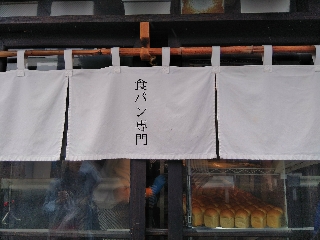 食パン専門